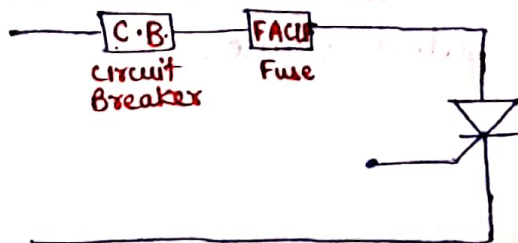 C.B.
FACLF
circuit
Breaker
Fuse